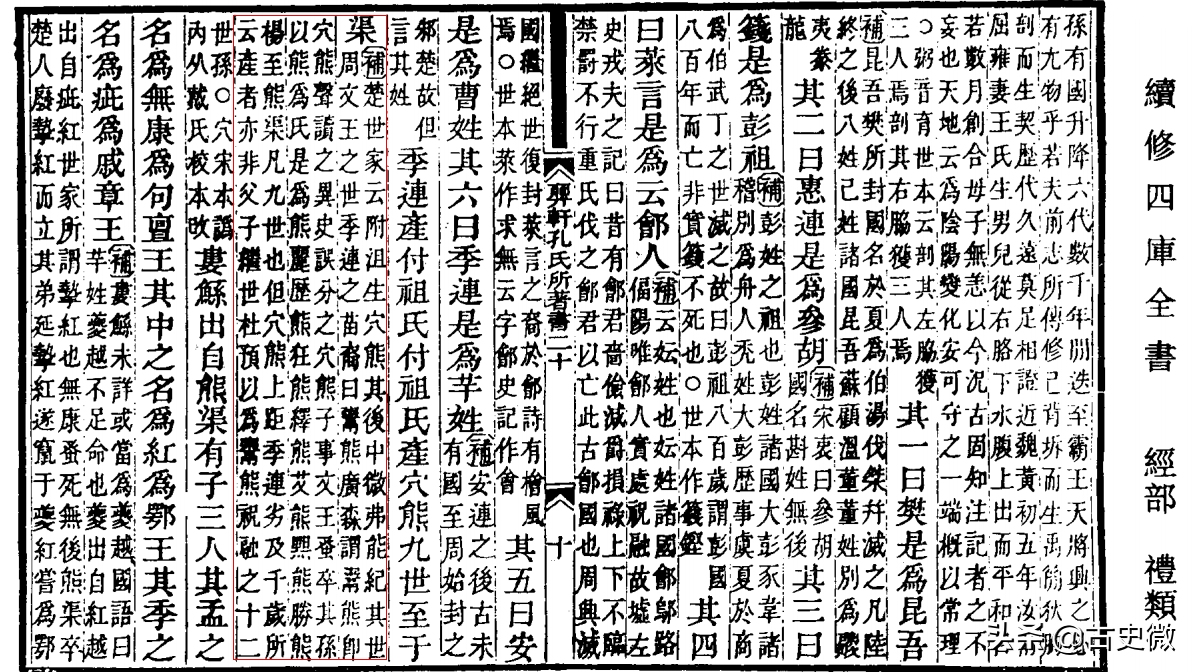 續修四庫全書 經部 禮類
孫有國升降六代數千年間迭至霸王天將興之
有尤物乎若夫前志所傳修己背坼而生禹簡狄胸
剖而生契歷代久遠莫足相證近魏黃初五年汝南
屈雍妻王氏生男兒從右胳下水腹上出而平和云
若數月創合母子無恙以今況古固知注記者之不
妄也天地云為陰陽變化安可守之一端概以常理
○弼音育世本云剖其左脇獲
三人焉剖其右脇獲三人焉
其一曰樊是為昆吾
補昆吾樊所封國名於夏為伯湯伐桀并滅之凡陸
終之後八姓己姓諸國昆吾蘇顧溫董董姓別為鬷
夷豢
龍
其二曰惠連是為參胡
補宋衷曰參胡
國名斟姓無後
其三曰
籛是為彭祖
補彭姓之祖也彭姓諸國大彭豕韋諸
稽別為舟人禿姓大彭歷事虞夏於商
為伯武丁之世滅之故曰彭祖八百歲謂彭國
八百年而亡非實籛不死也○世本作籛鏗
其四
曰萊言是為云鄶人
補云妘姓也妘姓諸國鄶鄔路
偪陽唯鄶人實處祝融故墟左
史戎夫之記曰昔有鄶君嗇儉滅爵損祿上下不臨
禁罰不行重氏伐之鄶君以亡此古鄶國也周興滅
顨軒孔氏所著書二十
十
國繼絕世復封萊言之裔於鄶詩有檜風
焉○世本萊作求無云字鄶史記作會
其五曰安
是為曹姓其六曰季連是為羋姓
補安連之後古未
有國至周始封之
邾楚故但
言其姓
季連產付祖氏付祖氏產穴熊九世至于
渠
補楚世家云附沮生穴熊其後中微弗能紀其世
周文王之世季連之苗裔曰鬻熊廣森謂鬻熊卽
穴熊聲讀之異史誤分之穴熊子事文王蚤卒其孫
以熊為氏是為熊麗歷熊狂熊繹熊艾熊䵣熊勝熊
楊至熊渠凡九世也但穴熊上距季連劣及千歲所
云產者亦非父子繼世杜預以為鬻熊祝融之十二
世孫○穴宋本譌
內从戴氏校本改
婁鯀出自熊渠有子三人其孟之
名為無康為句亶王其中之名為紅為鄂王其季之
名為疵為戚章王
補婁鯀未詳或當為夔越國語曰
羋姓夔越不足命也夔出自紅越
出自疵紅世家所謂摯紅也無康蚤死無後熊渠卒
楚人廢摯紅而立其弟延摯紅遂竄于夔紅嘗為鄂
头条@古史微